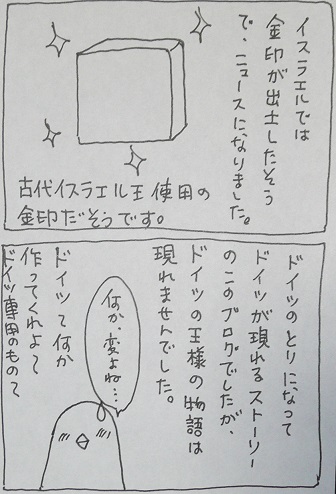 イスラエルでは
金印が出土したそう
で、ニュースになりました。
古代イスラエル王使用の
金印だそうです。
ドイツのとりになって
ドイツが現れるストーリー
のこのブログでしたが、
ドイツの王様の物語は
現れませんでした。
何か、変よね…
ドイツ〜何か
作ってくれよ〜
ドイツ専用のもの〜